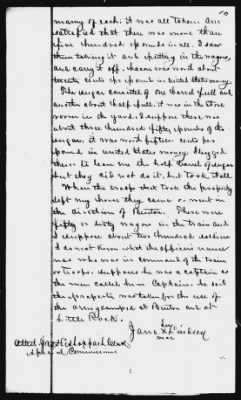 10
many of each; it was all taken. Am
satisfied that there was more than
five hundred pounds in all. I saw
them taking it and putting in the wagons
and carry it off. bacon was worth about
twenty cents per pound in United States money.
The sugar consisted of one barrel full and
another about half full. it was in the store
room in the yard. I suppose there was
about three hundred fifty pounds of the
sugar, it was worth fifteen cents per
pound in United States money. I begged
them to leave me the half barrel of sugar
but they did not do it, but took it all.
When the troops that took the property
left my house they came or went in
the direction of Benton. There were
fifty or sixty wagons in the train and
I suppose about two hundred soldiers
I do not know what the officers name
was who was in command of the train
or troops. Suppose he was a captain as
the men called him Captain. he said
the property was taken for the use of
the army camped at Benton and at
Little Rock.
her
Jane x Lindsey
mark
Attest
Special Commissioner